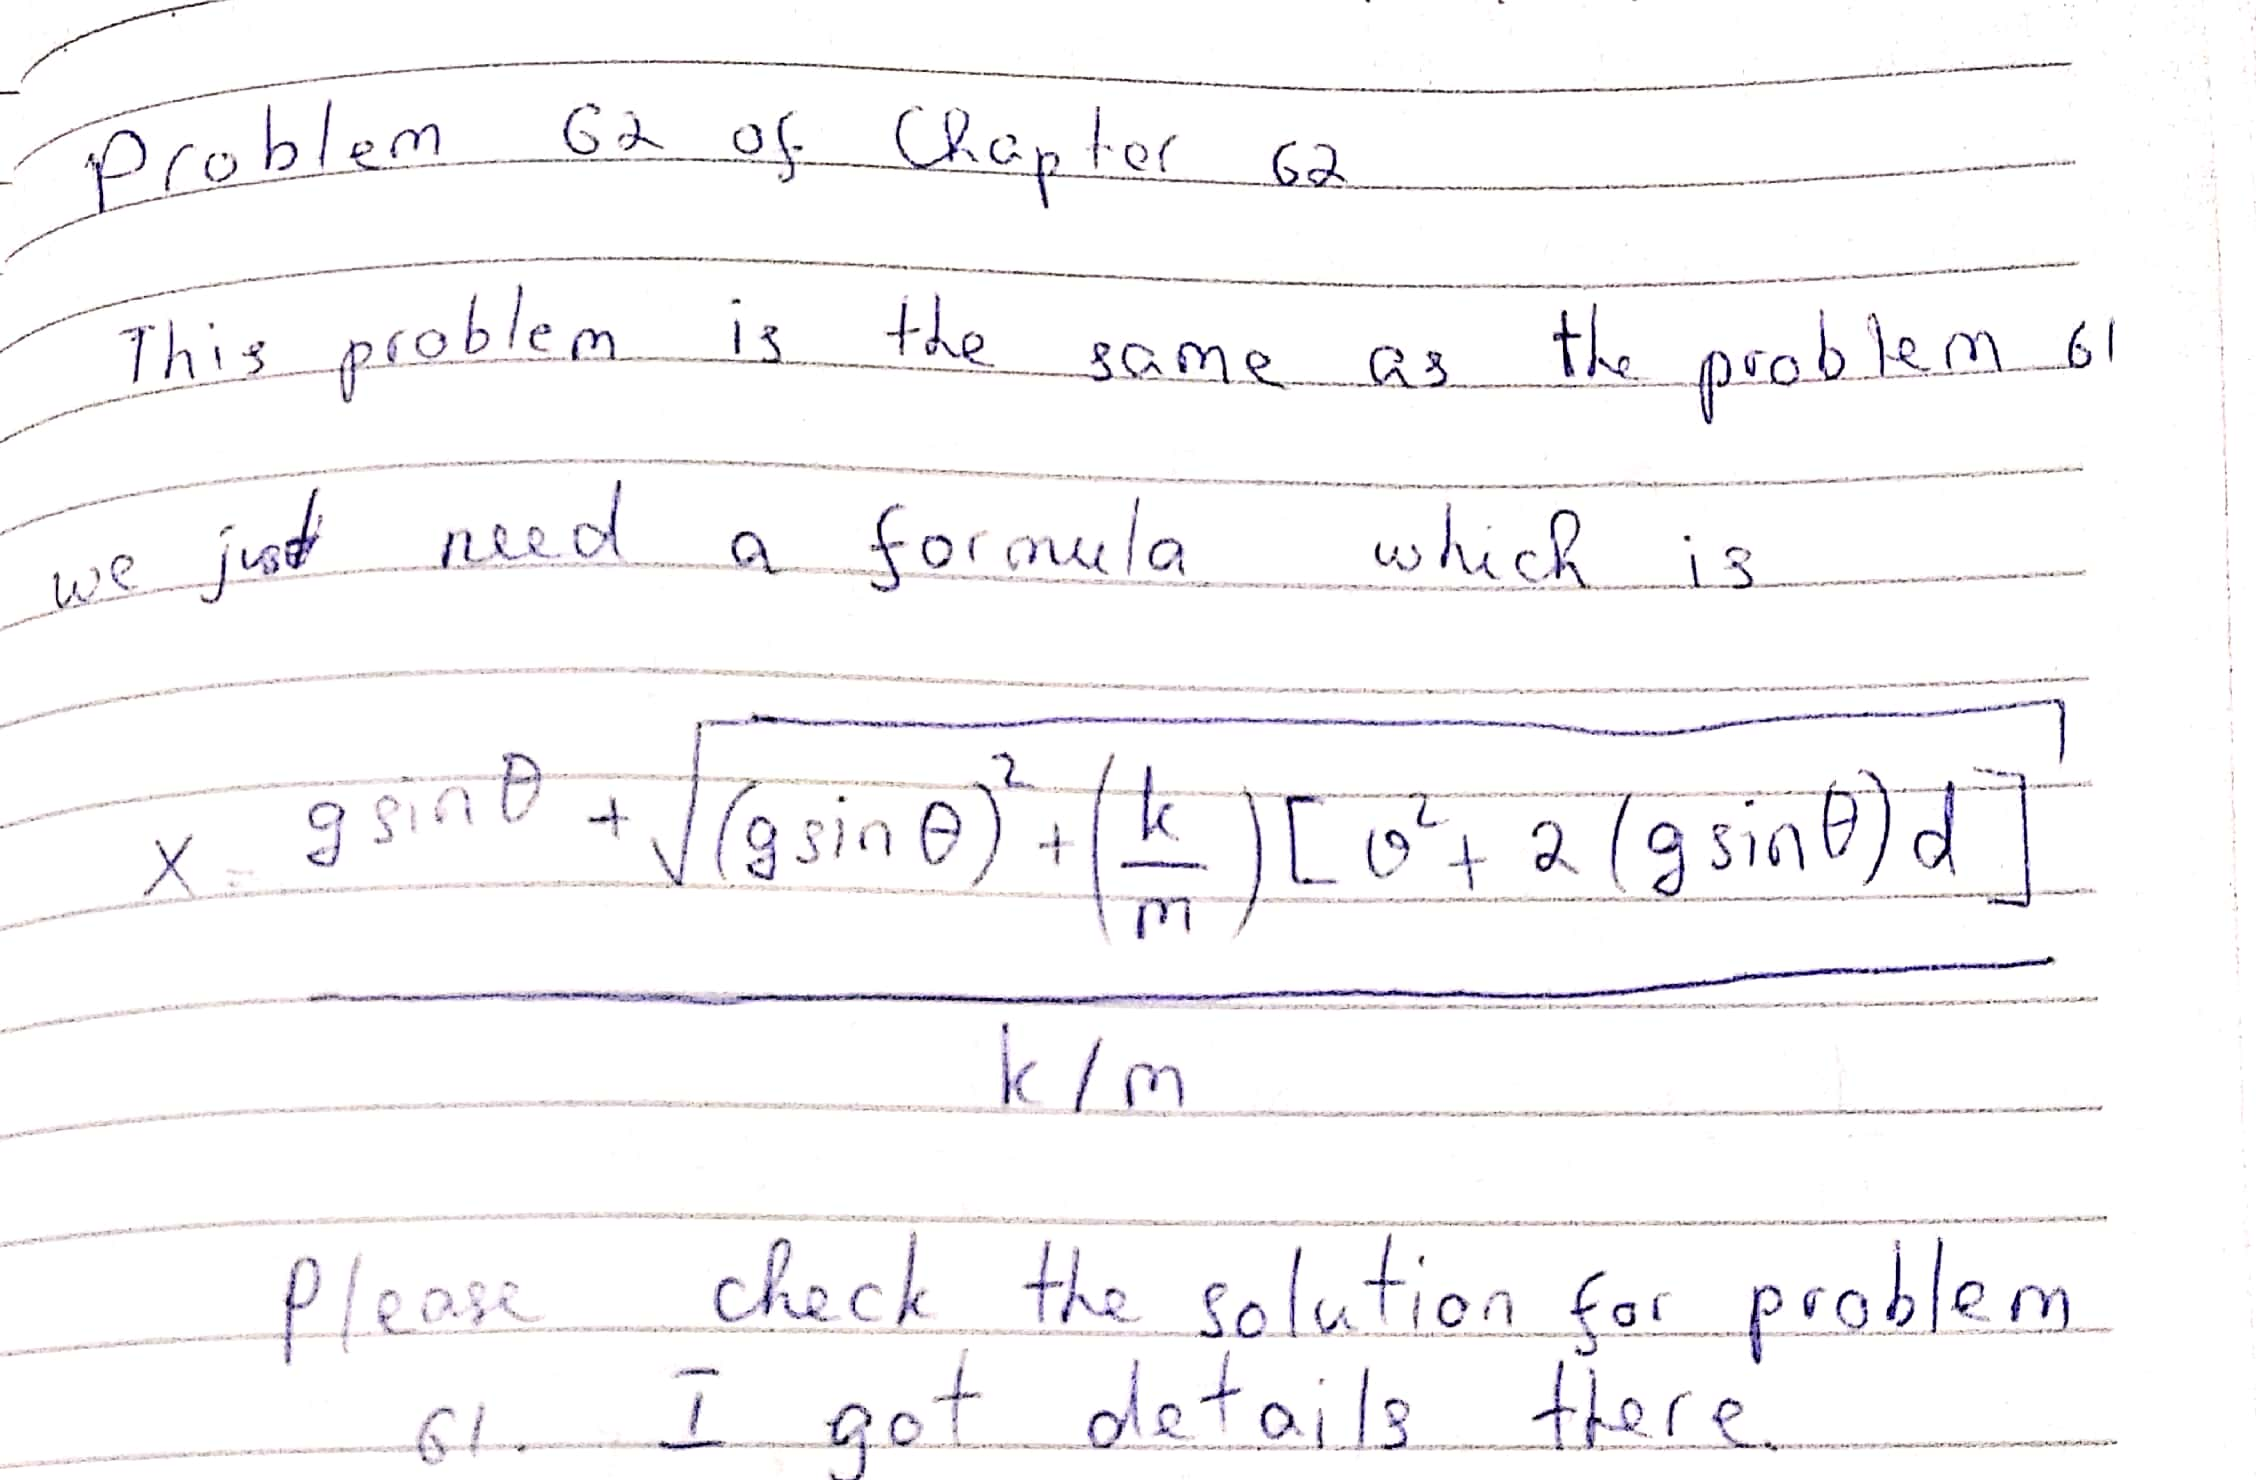 Problem 62 of Chapter 62
This problem is the same as the problem 61
we just need a formula which is
x = g sin θ + √(g sin θ)² + (k/m) [v² + 2 (g sin θ) d]
k/m
Please check the solution for problem
61. I got details there.